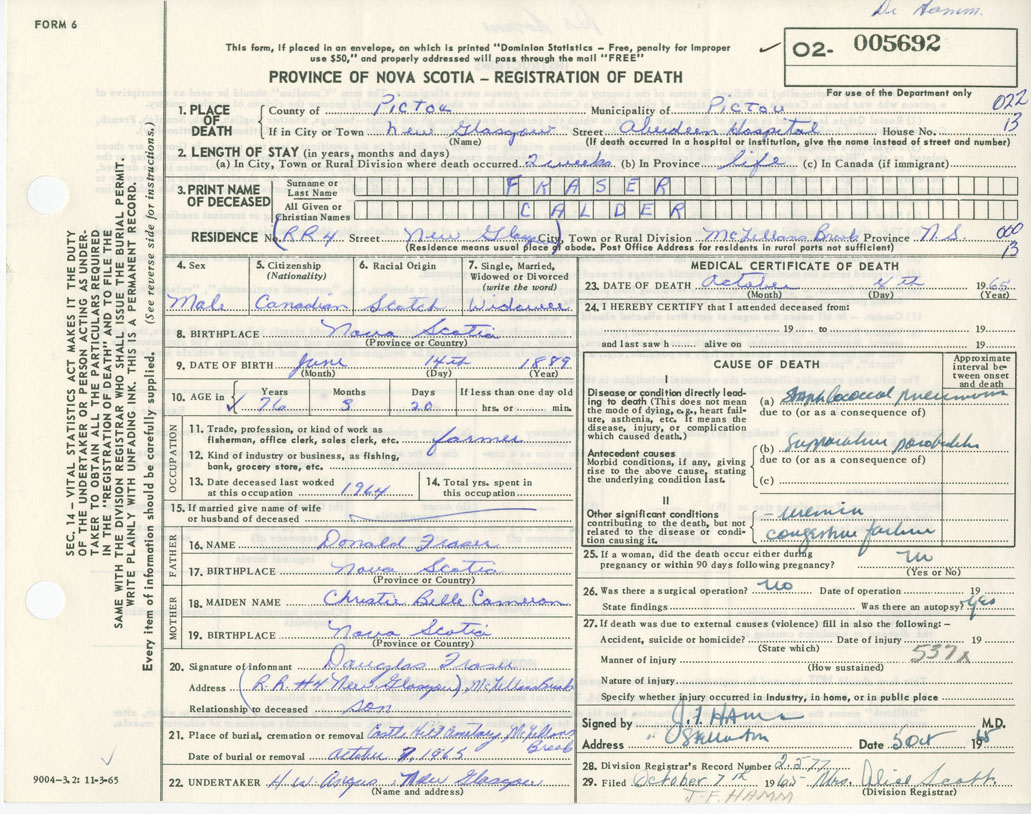 FORM 6
Dr Hamm.
This form, if placed in an envelope, on which is printed "Dominion Statistics – Free, penalty for improper
use $50," and properly addressed will pass through the mail "FREE"
✓ 02- 005692
PROVINCE OF NOVA SCOTIA – REGISTRATION OF DEATH
For use of the Department only
022
13
SEC. 14 – VITAL STATISTICS ACT MAKES IT THE DUTY
OF THE UNDERTAKER OR PERSON ACTING AS UNDER-
TAKER TO OBTAIN ALL THE PARTICULARS REQUIRED
IN THE "REGISTRATION OF DEATH" AND TO FILE THE
SAME WITH THE DIVISION REGISTRAR WHO SHALL ISSUE THE BURIAL PERMIT.
WRITE PLAINLY WITH UNFADING INK. THIS IS A PERMANENT RECORD.
Every item of information should be carefully supplied. (See reverse side for instructions.)
1. PLACE OF DEATH County of Pictou Municipality of Pictou
If in City or Town New Glasgow Street Aberdeen Hospital House No.
(Name) (If death occurred in a hospital or institution, give the name instead of street and number)
2. LENGTH OF STAY (in years, months and days)
(a) In City, Town or Rural Division where death occurred 2 weeks (b) In Province life (c) In Canada (if immigrant)
3. PRINT NAME OF DECEASED Surname or Last Name FRASER
All Given or Christian Names CALDER
RESIDENCE No. (RR4 Street New Glasgow) City, Town or Rural Division McLellans Brook Province N.S.
000
13
(Residence means usual place of abode. Post Office Address for residents in rural parts not sufficient)
4. Sex
Male
5. Citizenship
(Nationality)
Canadian
6. Racial Origin
Scotch
7. Single, Married,
Widowed or Divorced
(write the word)
Widower
8. BIRTHPLACE Nova Scotia
(Province or Country)
9. DATE OF BIRTH June 14th 1889
(Month) (Day) (Year)
10. AGE in Years Months Days If less than one day old
✓ 76 3 20 hrs. or min.
OCCUPATION
11. Trade, profession, or kind of work as
fisherman, office clerk, sales clerk, etc. farmer
12. Kind of industry or business, as fishing,
bank, grocery store, etc.
13. Date deceased last worked
at this occupation 1964
14. Total yrs. spent in
this occupation
15. If married give name of wife
or husband of deceased
FATHER
16. NAME Donald Fraser
17. BIRTHPLACE Nova Scotia
(Province or Country)
MOTHER
18. MAIDEN NAME Christie Belle Cameron
19. BIRTHPLACE Nova Scotia
(Province or Country)
20. Signature of informant Dauglas Fraser
Address (R.R.#4 New Glasgow), McLellans Brook
Relationship to deceased son
21. Place of burial, cremation or removal Cemetery, McLellans Brook
Date of burial or removal October 7, 1965
22. UNDERTAKER H.W. Angus New Glasgow
(Name and address)
9004-3.2: 11-3-65
MEDICAL CERTIFICATE OF DEATH
23. DATE OF DEATH October 4th 1965
(Month) (Day) (Year)
24. I HEREBY CERTIFY that I attended deceased from:
19 to 19
and last saw h alive on 19
CAUSE OF DEATH
Approximate
interval be-
tween onset
and death
I
Disease or condition directly lead-
ing to death (This does not mean
the mode of dying, e.g., heart fail-
ure, asthenia, etc. It means the
disease, injury, or complication
which caused death.)
(a) pneumonia
due to (or as a consequence of)
Antecedent causes
Morbid conditions, if any, giving
rise to the above cause, stating
the underlying condition last.
(b) Suppurative
due to (or as a consequence of)
(c)
II
Other significant conditions
contributing to the death, but not
related to the disease or condi-
tion causing it.
– uremia
congestive failure
25. If a woman, did the death occur either during
pregnancy or within 90 days following pregnancy?
(Yes or No)
26. Was there a surgical operation? no Date of operation 19
State findings Was there an autopsy? Yes
27. If death was due to external causes (violence) fill in also the following:–
Accident, suicide or homicide? Date of injury 19
(State which)
537x
Manner of injury
(How sustained)
Nature of injury
Specify whether injury occurred in Industry, in home, or in public place
Signed by J. F. HAMM M.D.
Address Stellarton Date 5 Oct 1965
28. Division Registrar's Record Number 2577
29. Filed October 7th 1965 Mrs. Alice Scott
(Division Registrar)
J-F. HAMM